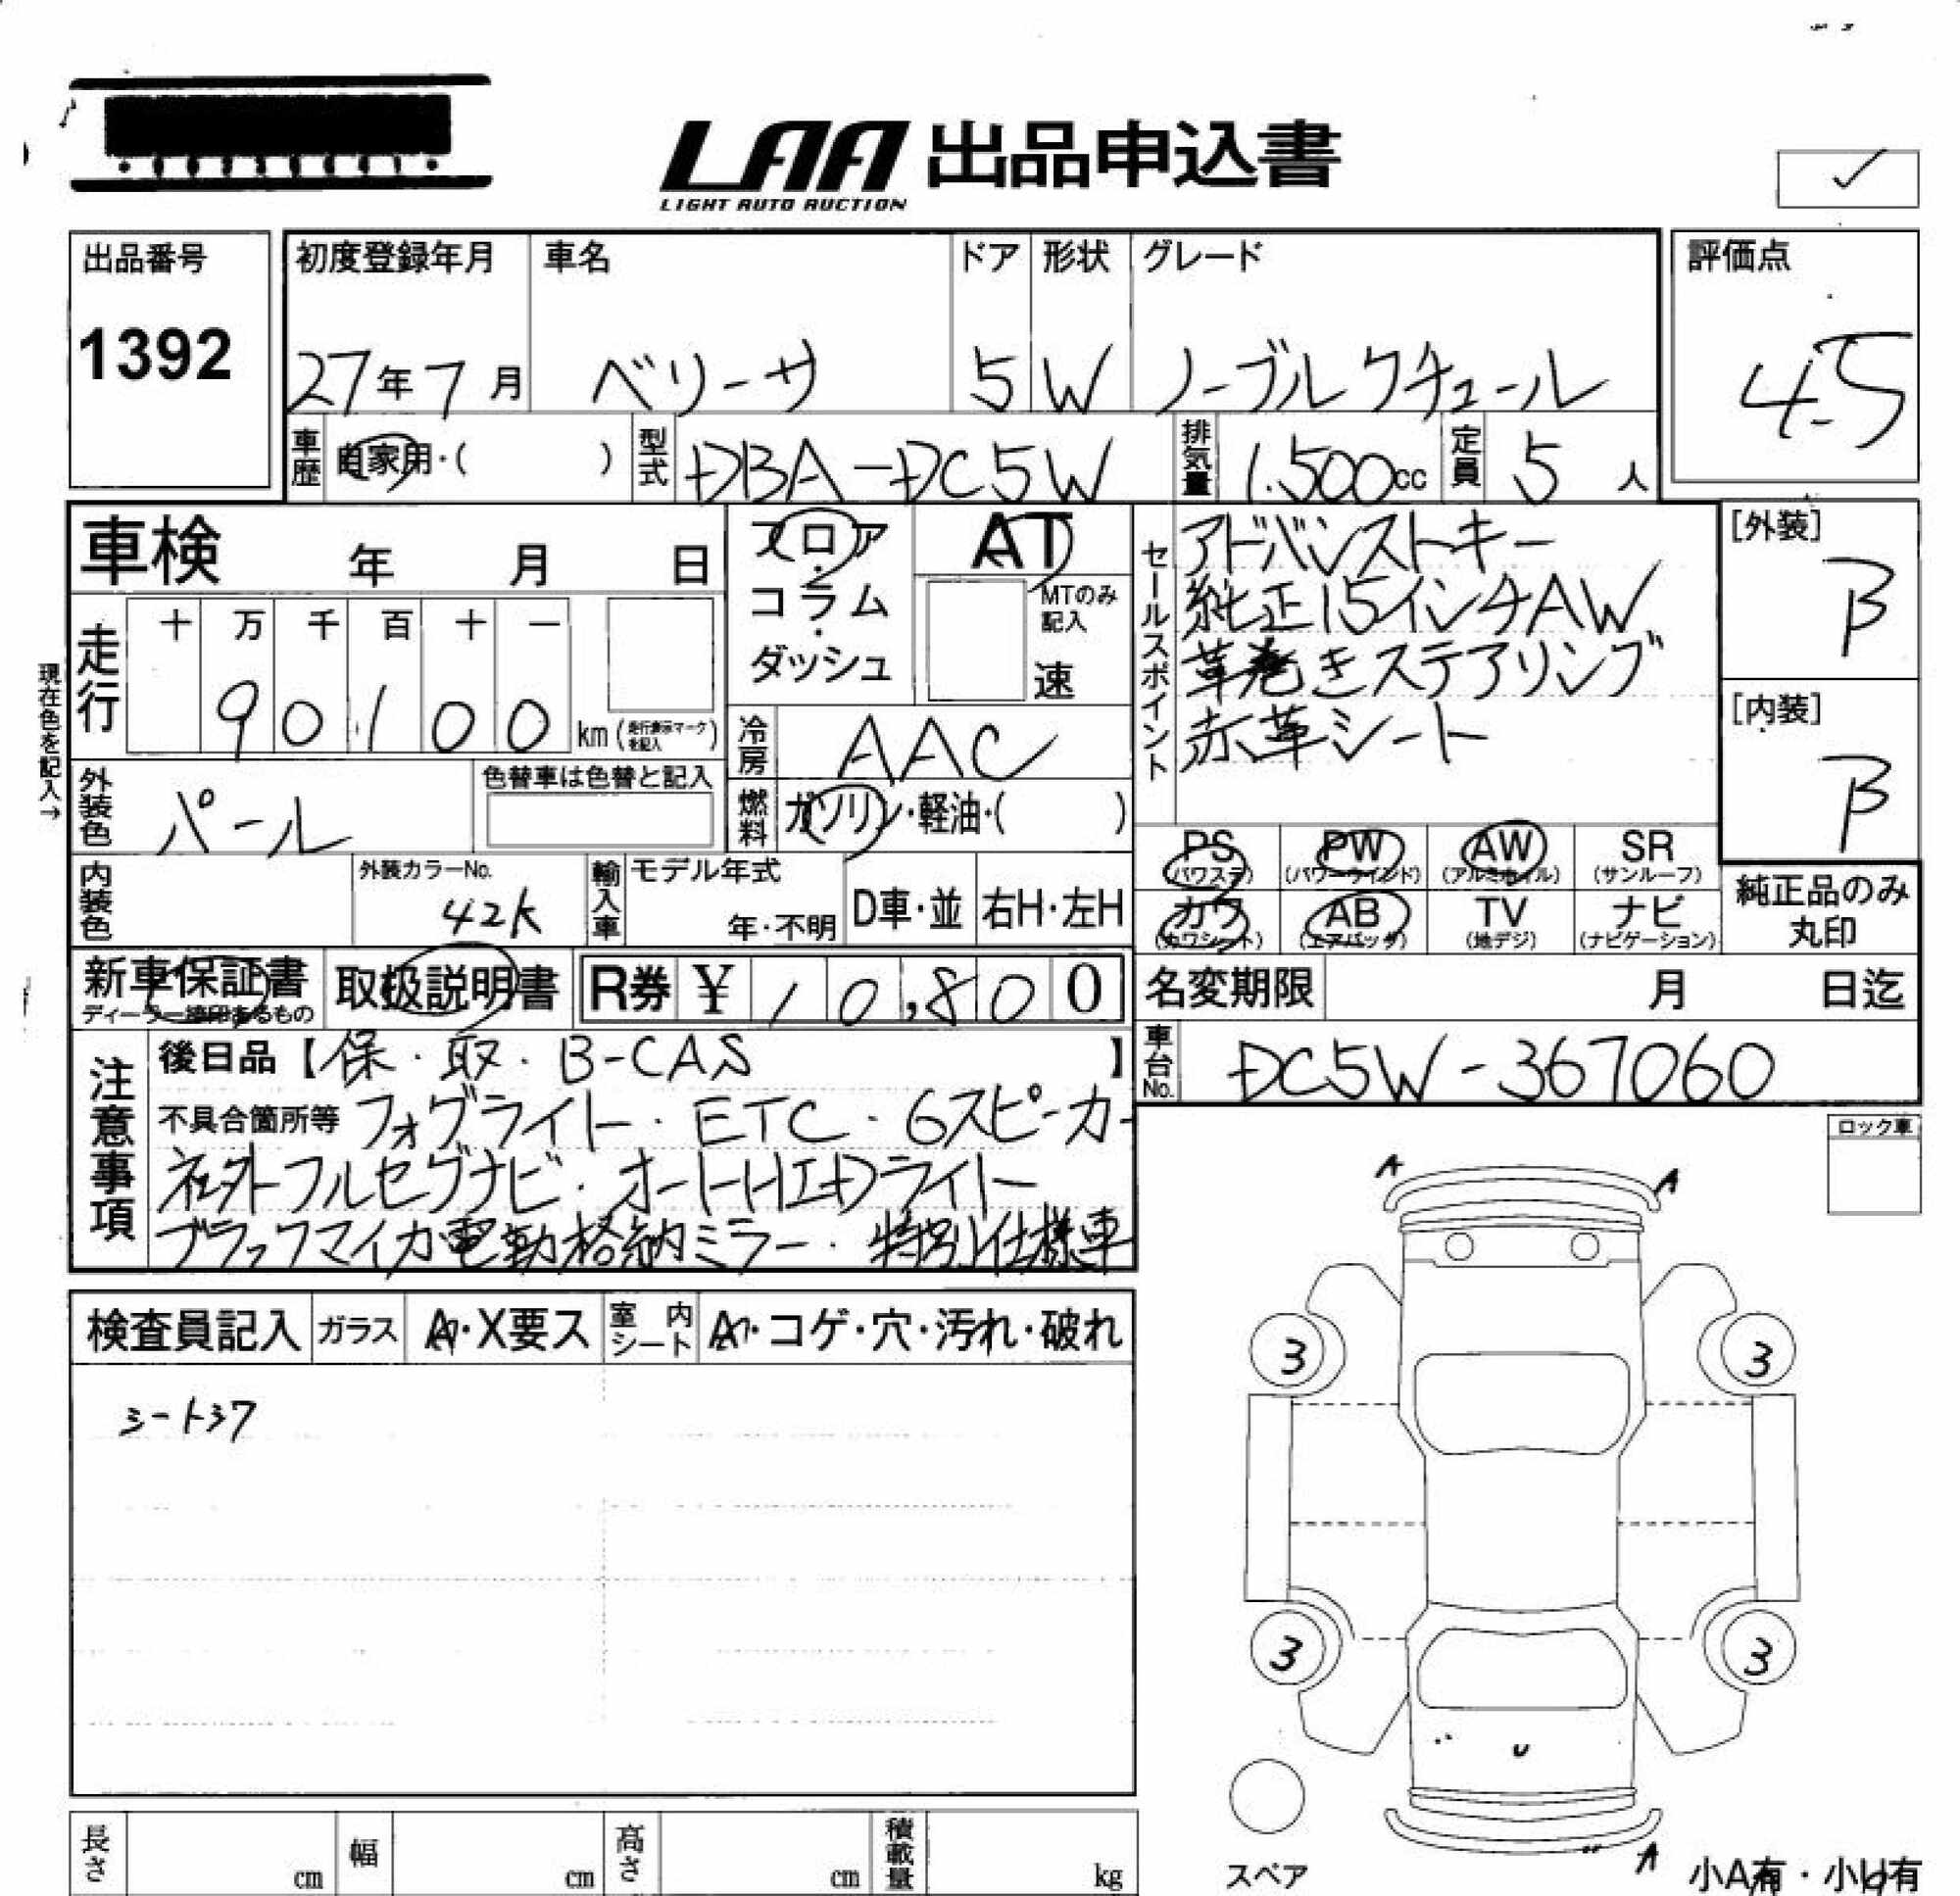 LAA 出品申込書
LIGHT AUTO AUCTION
出品番号
1392
初度登録年月
27年7月
車名
ベリーサ
ドア
5
形状
W
グレード
ノーブルクチュール
評価点
4.5
車歴
自家用・( )
型式
DBA-DC5W
排気量
1.500cc
定員
5人
車検 年 月 日
フロア・コラム・ダッシュ
AT
MTのみ記入
速
セールスポイント
アドバンストキー
純正15インチAW
革巻きステアリング
赤革シート
[外装]
B
[内装]
B
現在色を記入→
走行
十 万 千 百 十 一
9 0 1 0 0 km(走行表示マークを記入)
冷房
AAC
外装色
パール
色替車は色替と記入
燃料
ガソリン・軽油・( )
PS (パワステ)
PW (パワーウインド)
AW (アルミホイル)
SR (サンルーフ)
カワ (カワシート)
AB (エアバッグ)
TV (地デジ)
ナビ (ナビゲーション)
純正品のみ丸印
内装色
外装カラーNo.
42K
輸入車
モデル年式
年・不明
D車・並
右H・左H
新車保証書
取扱説明書
R券 ¥ 10,800
名変期限 月 日迄
車台No.
DC5W-367060
注意事項
後日品【保・取・B-CAS】
不具合箇所等 フォグライト・ETC・6スピーカー
社外フルセグナビ・オートHIDライト
ブラックマイカ電動格納ミラー・特別仕様車
ロック車
検査員記入
ガラス
A・X要ス
室内シート
A・コゲ・穴・汚れ・破れ
A A
3 3
3 3
U
A
スペア
小A有・小U有
長さ cm
幅 cm
高さ cm
積載量 kg